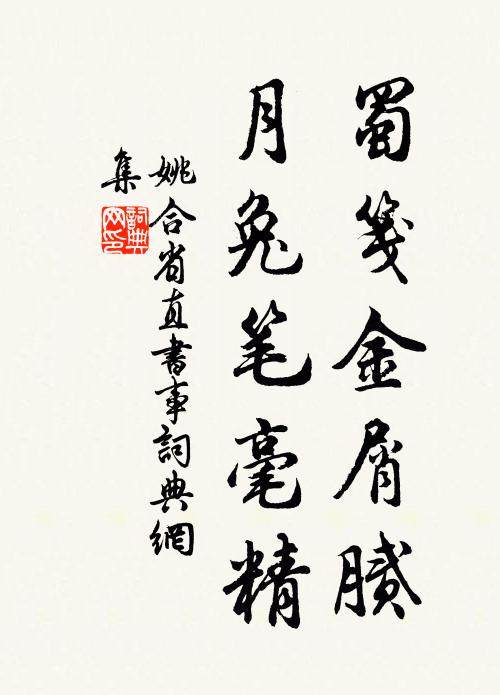 蜀笺金屑膩
月兔笔毫精
姚合省直書事詞典網
集
詞典
网印